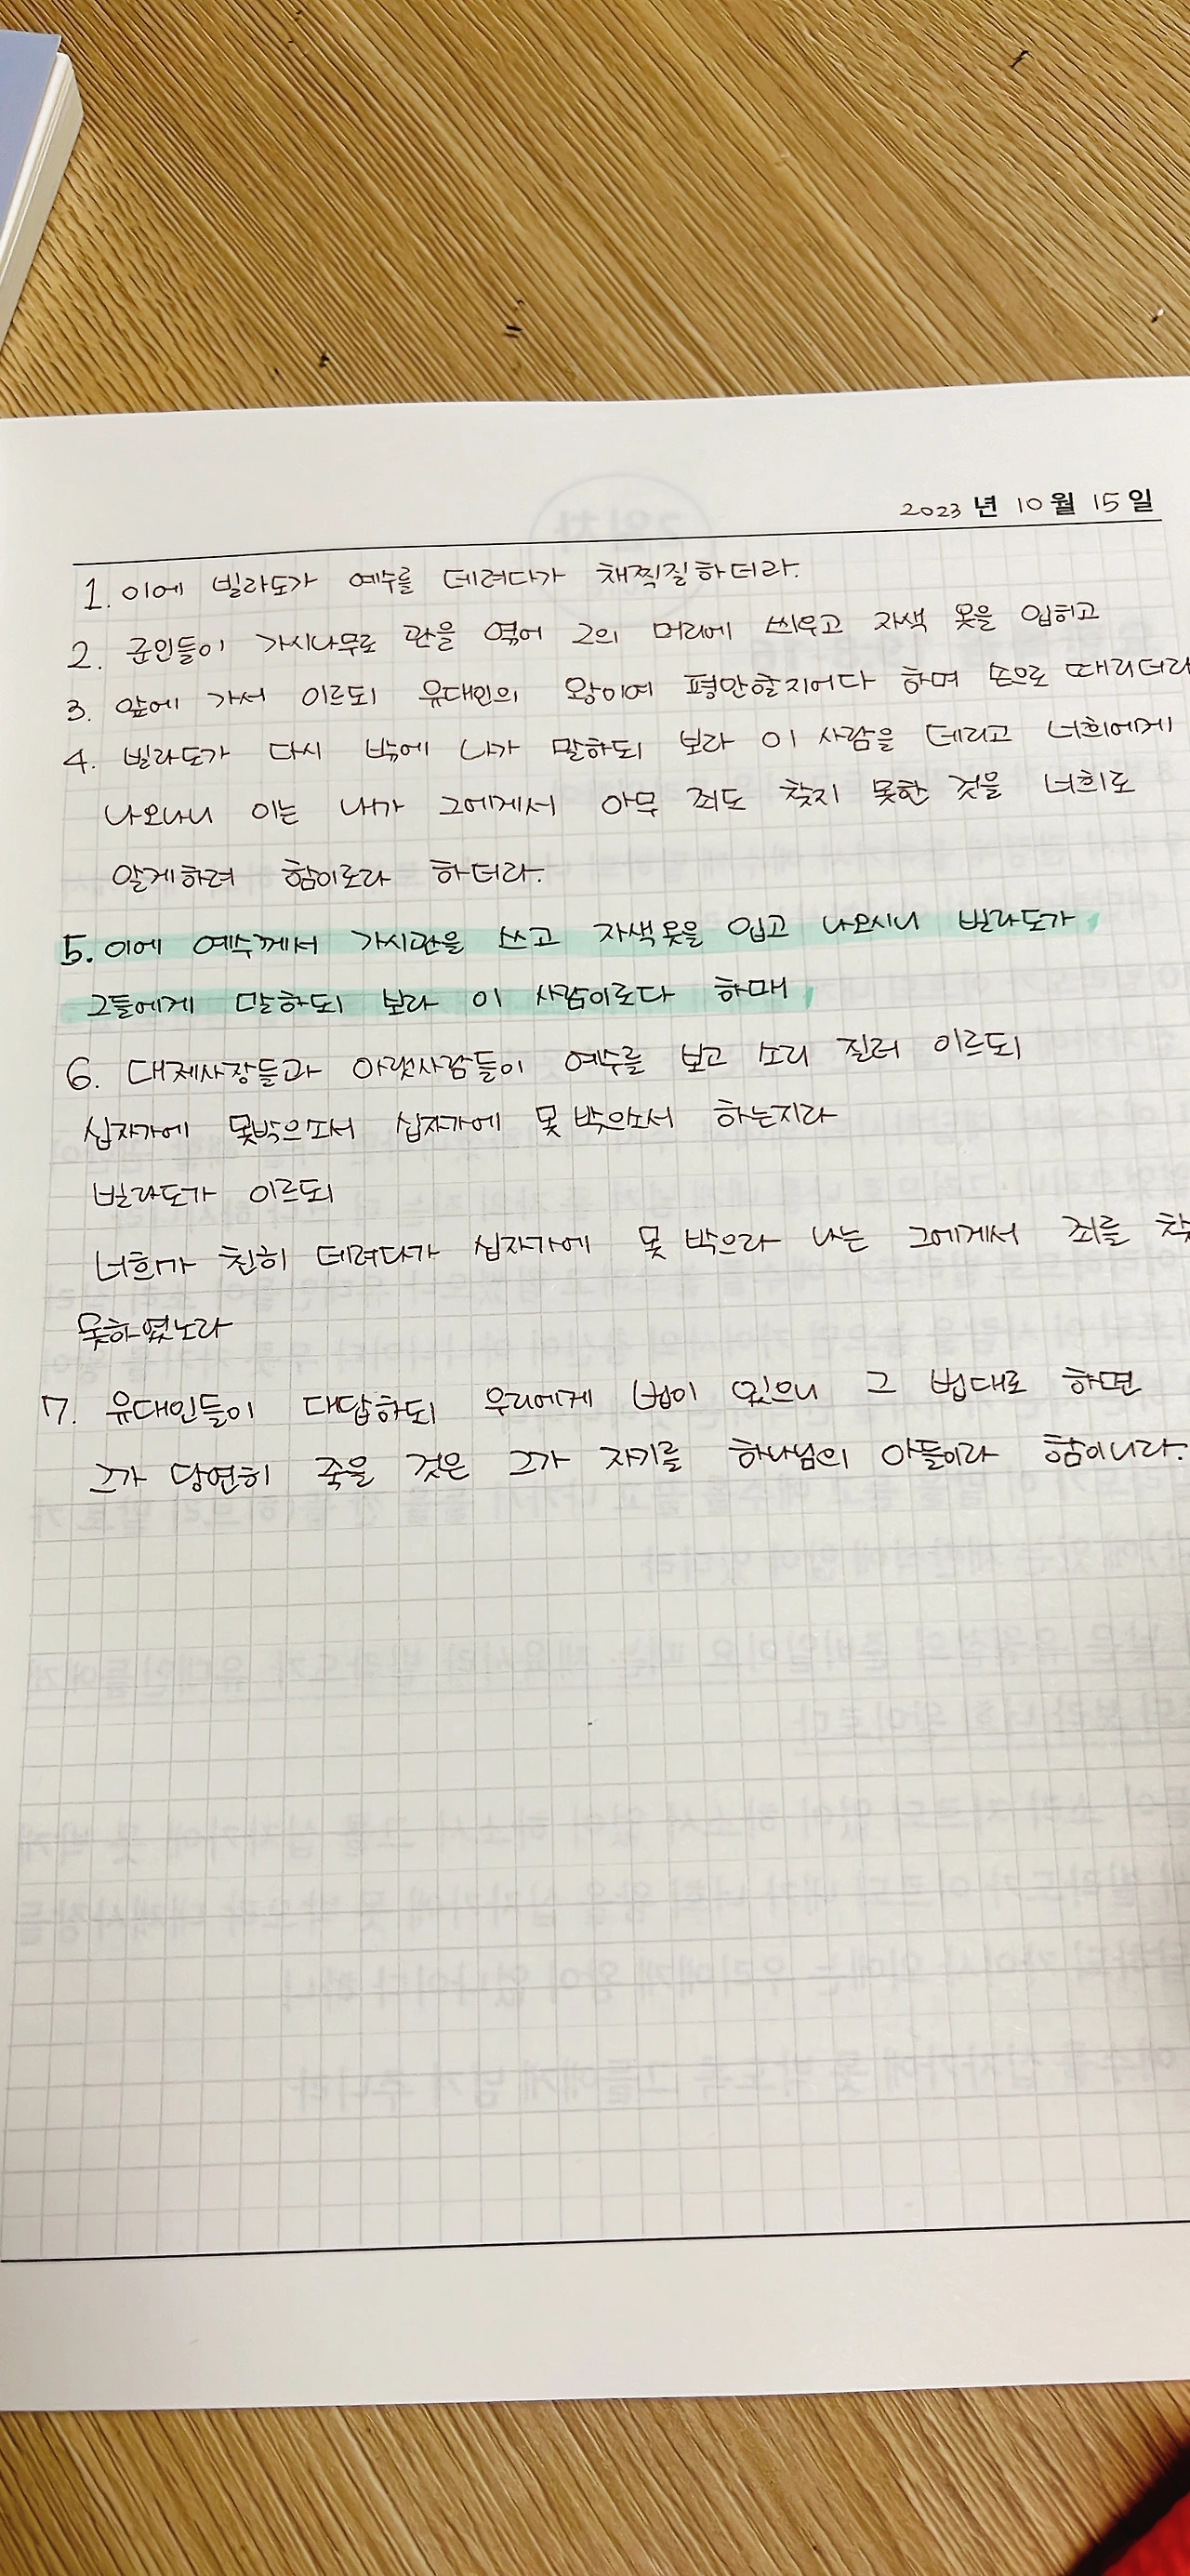 2023 년 10 월 15 일
1. 이에 빌라도가 예수를 데려다가 채찍질하더라.
2. 군인들이 가시나무로 관을 엮어 그의 머리에 씌우고 자색 옷을 입히고
3. 앞에 가서 이르되 유대인의 왕이여 평안할지어다 하며 손으로 때리더라
4. 빌라도가 다시 밖에 나가 말하되 보라 이 사람을 데리고 너희에게
나오나니 이는 내가 그에게서 아무 죄도 찾지 못한 것을 너희로
알게하려 함이로라 하더라.
5. 이에 예수께서 가시관을 쓰고 자색옷을 입고 나오시니 빌라도가
그들에게 말하되 보라 이 사람이로다 하매
6. 대제사장들과 아랫사람들이 예수를 보고 소리 질러 이르되
십자가에 못박으소서 십자가에 못 박으소서 하는지라
빌라도가 이르되
너희가 친히 데려다가 십자가에 못 박으라 나는 그에게서 죄를 찾
못하였노라
7. 유대인들이 대답하되 우리에게 법이 있으니 그 법대로 하면
그가 당연히 죽을 것은 그가 자기를 하나님의 아들이라 함이니라.